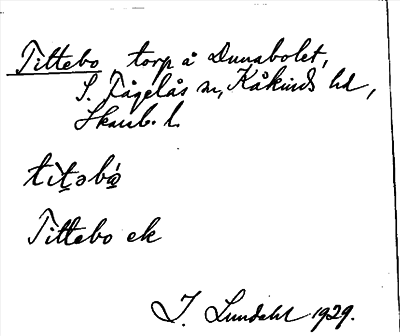 Tittebo torp å Dunabolet,
S. Fågelås sn, Kåkinds hd,
Skarab. l.
tìt̠əbó̠
Tittebo ek
I. Lundahl 1929.